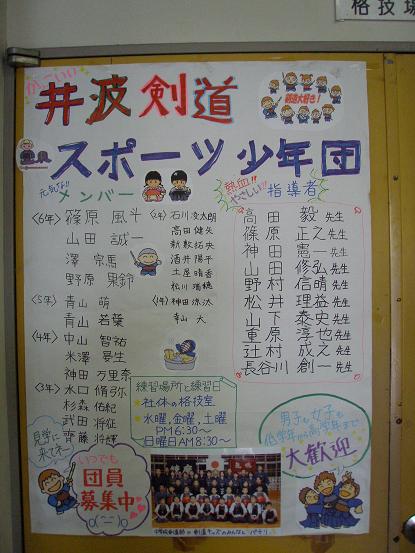 格技場
かっこいい
井波剣道
剣道大好き!
スポーツ少年団
元気な!!
メンバー
熱血!!
やさしい!!
指導者
<6年> 篠原 風斗
山田 誠一
澤 宗馬
野原 果鈴
<5年> 青山 萌
青山 若葉
<4年> 中山 智祐
米澤 晏生
神田 万里奈
<3年> 水口 脩弥
杉森 佑紀
武田 将征
齊藤 将輝
<2年> 石川 凌太朗
高田 健矢
新敷 拓央
酒井 陽平
土屋 晴香
松川 瑞穂
<1年> 神田 涼汰
幸山 大
高田 毅 先生
篠原 正之 先生
神田 憲一 先生
山田 修弘 先生
野村 信晴 先生
松井 理益 先生
山下 泰史 先生
重原 淳也 先生
辻村 成之 先生
長谷川 創一 先生
練習場所と練習日
★社体の格技室
★水曜,金曜,土曜
PM6:30〜
日曜日AM8:30〜
見学に
来てネー
いつでも
団員
募集中
男子も女子も
低学年から高学年まで
大歓迎